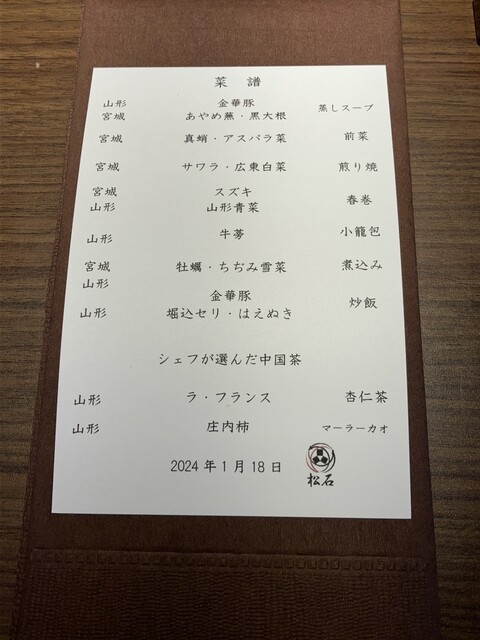 菜 譜
山形 金華豚 蒸しスープ
宮城 あやめ蕪・黒大根
宮城 真蛸・アスパラ菜 前菜
宮城 サワラ・広東白菜 煎り焼
宮城 スズキ 春巻
山形 山形青菜
山形 牛蒡 小籠包
宮城 牡蠣・ちぢみ雪菜 煮込み
山形 金華豚 炒飯
山形 堀込セリ・はえぬき
シェフが選んだ中国茶
山形 ラ・フランス 杏仁茶
山形 庄内柿 マーラーカオ
2024年1月18日 松石